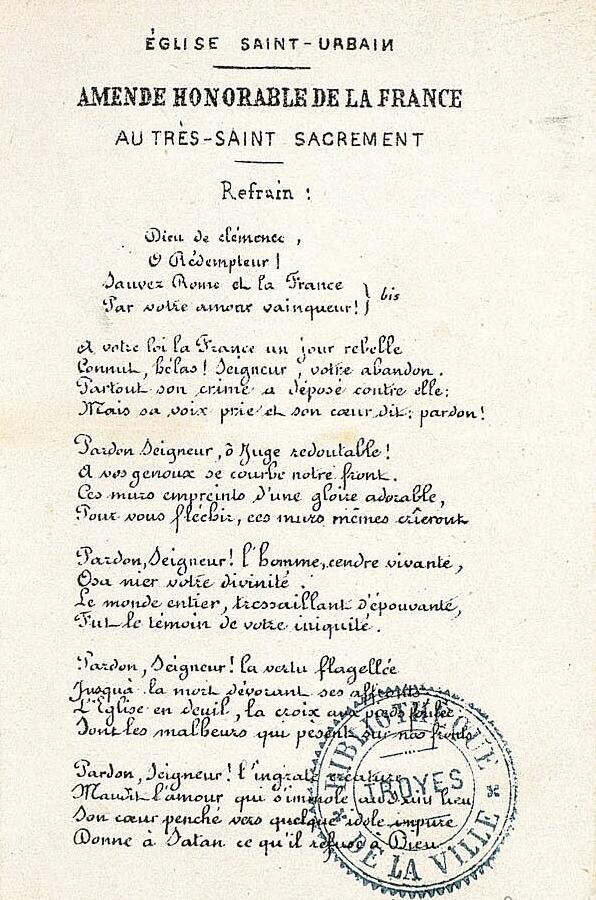 ÉGLISE SAINT-URBAIN
AMENDE HONORABLE DE LA FRANCE
AU TRÈS-SAINT SACREMENT
Refrain :
Dieu de clémence,
O Rédempteur !
Sauvez Rome et la France
Par votre amour vainqueur ! } bis
A votre loi la France un jour rebelle
Connut, hélas ! Seigneur, votre abandon.
Partout son crime a déposé contre elle:
Mais sa voix prie et son cœur dit: pardon !
Pardon Seigneur, ô Juge redoutable !
A vos genoux se courbe notre front.
Ces murs empreints d'une gloire adorable,
Pour vous fléchir, ces murs mêmes crieront
Pardon, Seigneur ! l'homme, cendre vivante,
Osa nier votre divinité.
Le monde entier, tressaillant d'épouvante,
Fut le témoin de votre iniquité.
Pardon, Seigneur ! la vertu flagellée
Jusqu'à la mort dévorant ses affronts
L'Eglise en deuil, la croix aux pieds foulée
Sont les malheurs qui pèsent sur nos fronts
Pardon, Seigneur ! l'ingrate créature
Maudit l'amour qui s'immole au saint lieu
Son cœur penché vers quelque idole impure
Donne à Satan ce qu'il refuse à Dieu
BIBLIOTHÈQUE
TROYES
DE LA VILLE